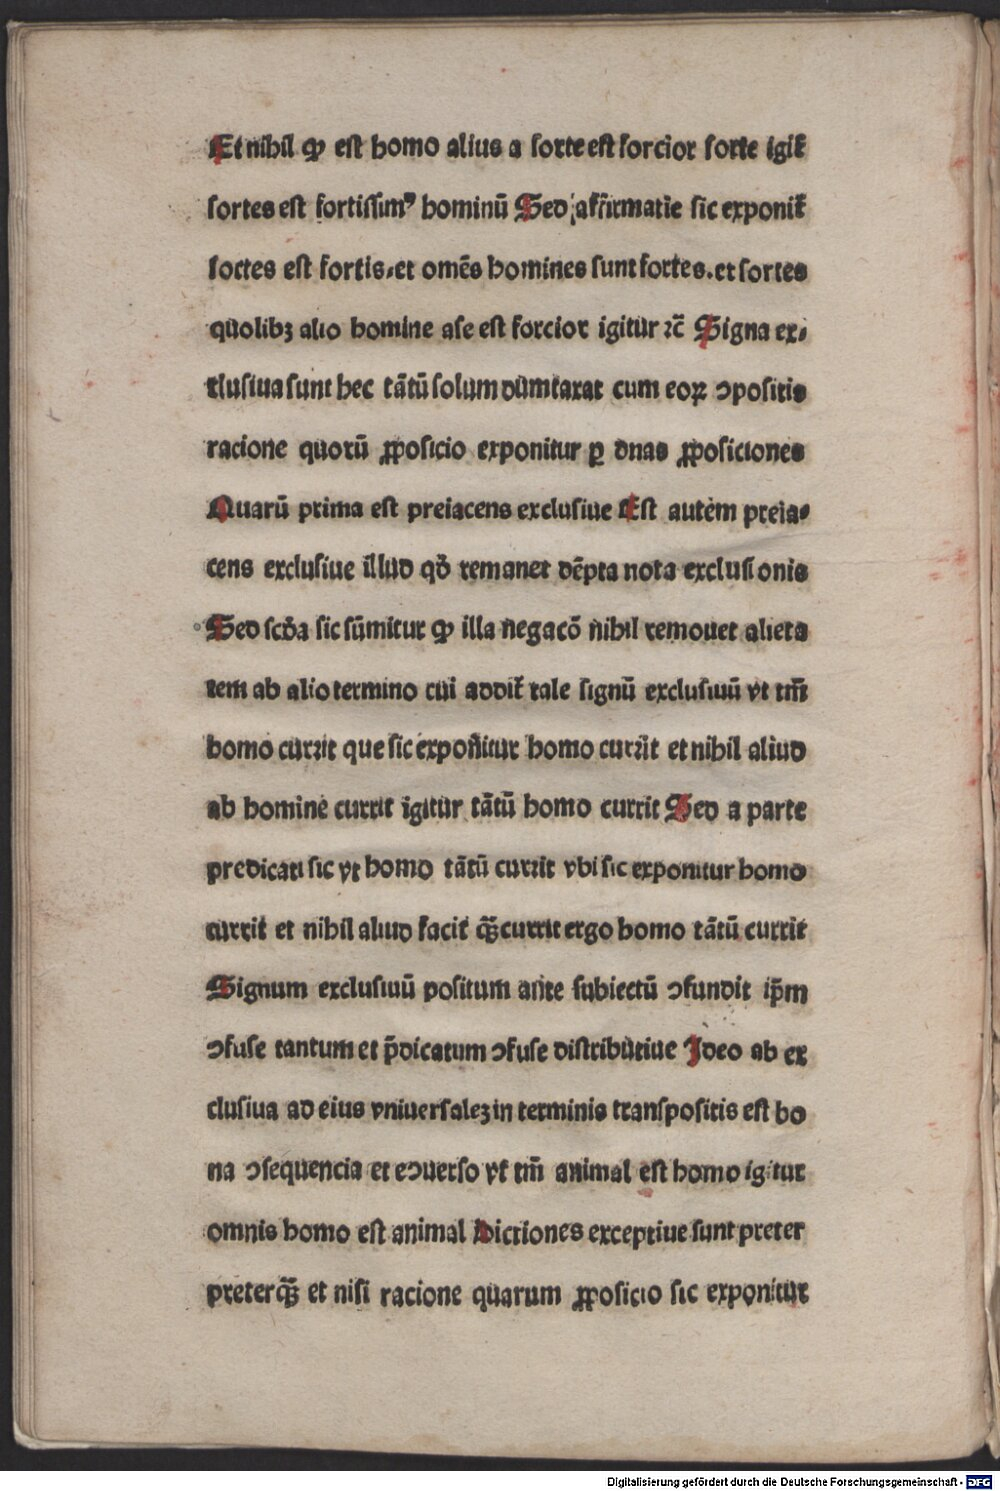 Et nihil ꝙ est homo alius a sorte est forcior sorte igit̃
sortes est fortissimꝰ hominū Sed affirmatīe sic exponit̃
soctes est fortis.et omēs homines sunt fortes.et sortes
quolibꝫ alio homine ase est forcior igitur ⁊c̄ Signa ex-
clusiua sunt hec tātū solum dumtaxat cum eoꝝ ↄpositis
racione quorū ꝓposicio exponitur ꝑ duas ꝓposiciones
Quarū prima est preiacens exclusiue Est autem preia-
cens exclusiue illud qd̄ remanet dēpta nota exclusionis
Sed scd̄a sic sūmitur ꝙ illa negacō nihil remouet alieta
tem ab alio termino cui addit̃ tale signū exclusiuū vt tm̄
homo currit que sic exponitur homo currit et nihil aliud
ab homine currit igitur tātū homo currit Sed a parte
predicati sic vt homo tātū currit vbi sic exponitur homo
currit et nihil aliud facit q̄ꝫ currit ergo homo tātū currit
Signum exclusiuū positum ante subiectū ↄfundit ip̄m
ↄfuse tantum et p̄dicatum ↄfuse distributiue Ideo ab ex
clusiua ad eius vniuersaleꝫ in terminis transpositis est bo
na ↄsequencia et eↄuerso vt tm̄ animal est homo igitur
omnis homo est animal Dictiones exceptiue sunt preter
preterq̄ꝫ et nisi racione quarum ꝓposicio sic exponitur
Digitalisierung gefördert durch die Deutsche Forschungsgemeinschaft - DFG